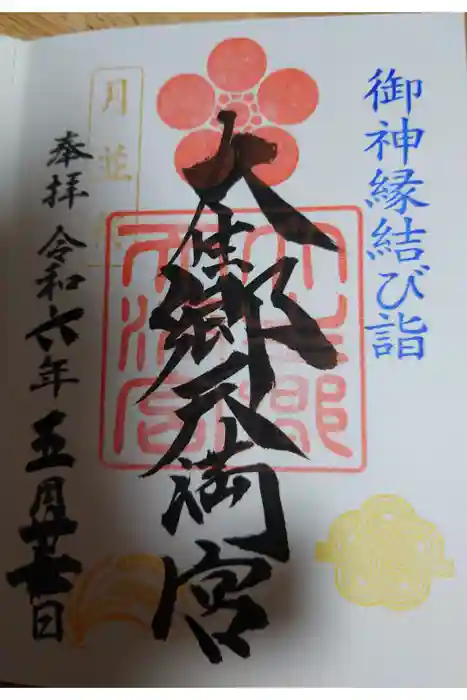 御神縁結び詣
大生郷天満宮
月並
奉拝 令和六年五月廿五日